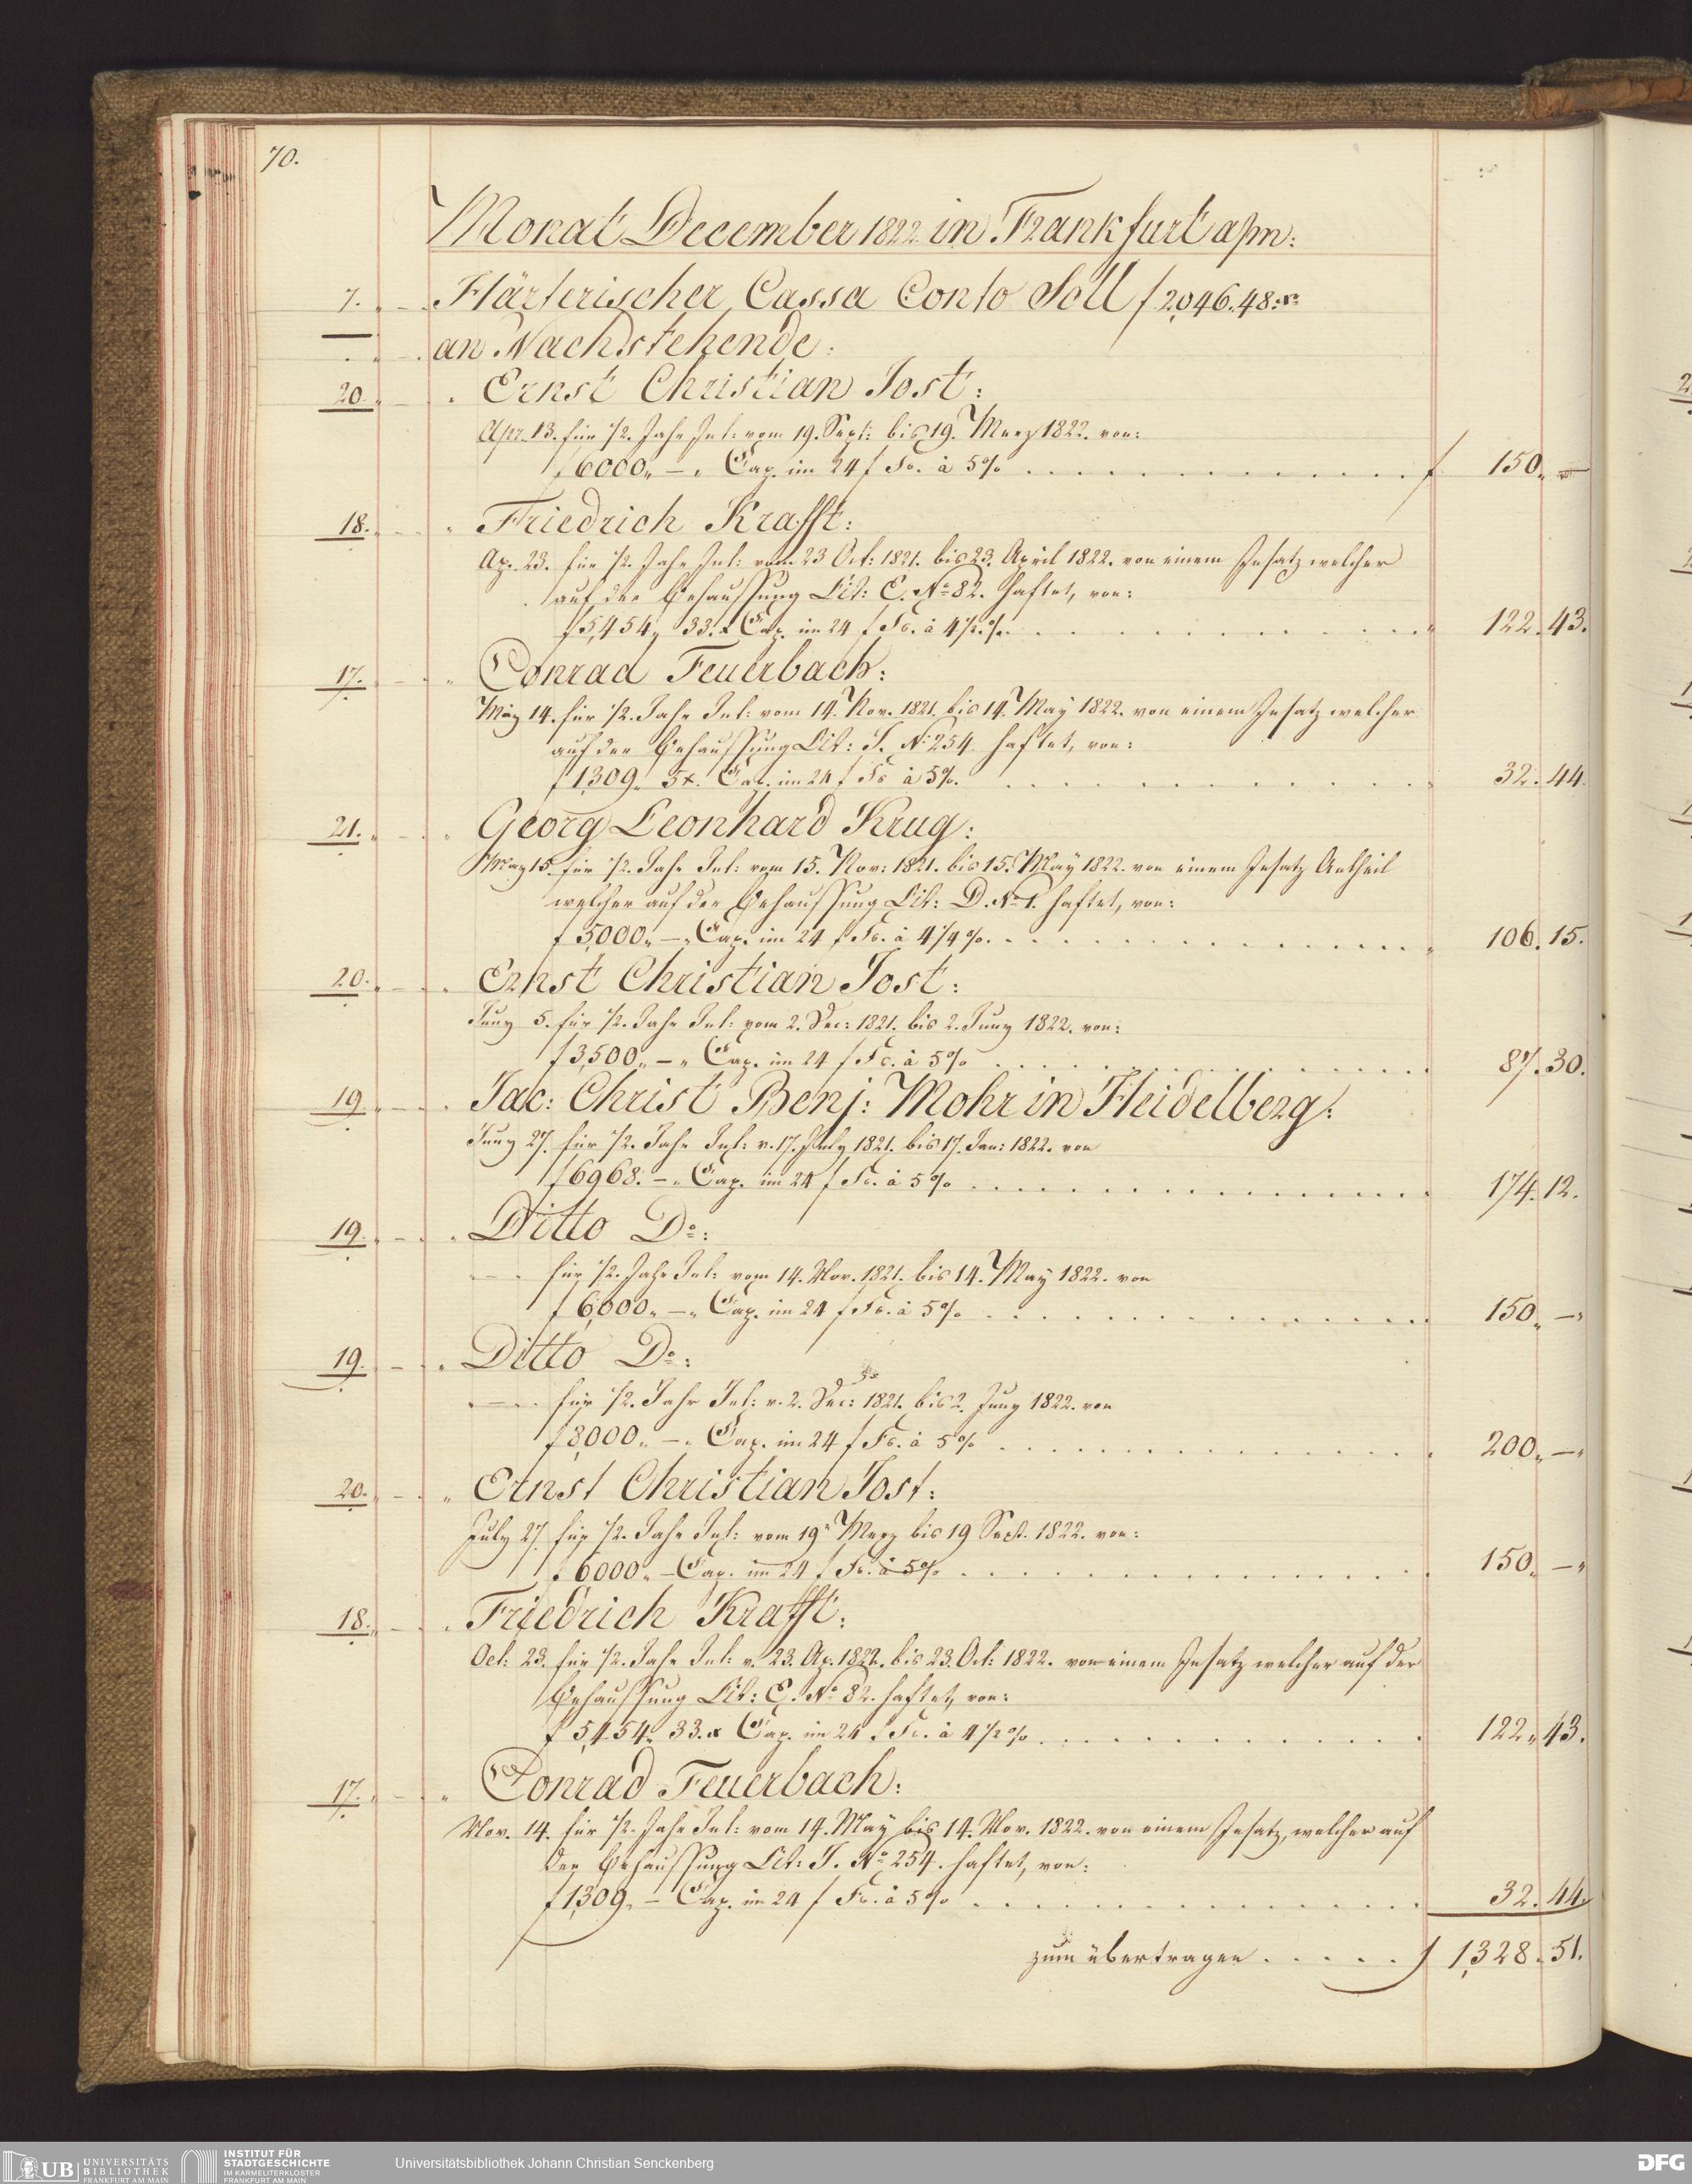 70.
Monat December 1822 in Frankfurt a/m:
7. Härterischer Cassa Conto Soll f 2,046.48.x
an Nachstehende:
20. Ernst Christian Jost:
Apr. 13. für 1/2. Jahr Int: vom 19. Sept: bis 19. Merz 1822. von:
f 6000. — Cap. im 24 f Fs. à 5% . . . f 150. —
18. Friedrich Krafft:
Ap. 23. für 1/2. Jahr Int: vom 23 Oct: 1821. bis 23. April 1822. von einem Insatz welcher
auf der Behaussung Lit: E. No 82. haftet, von:
f 5,454. 33.x Cap. im 24 f Fs. à 4 1/2.% . . . 122. 43.
17. Conrad Feuerbach:
May 14. für 1/2. Jahr Int: vom 14. Nov. 1821. bis 14. May 1822. von einem Insatz welcher
auf der Behaussung Lit: J. No 254 haftet, von:
f 1,309. 5x. Cap. im 24 f Fs à 5%. . . . 32. 44.
21. Georg Leonhard Krug:
May 15. für 1/2. Jahr Int: vom 15. Nov: 1821. bis 15. May 1822. von einem Insatz Antheil
welcher auf der Behaussung Lit: D. No 1. haftet, von:
f 5,000. — Cap. im 24 f Fs. à 4 1/4 %. . . . 106. 15.
20. Ernst Christian Jost:
Juny 5. für 1/2. Jahr Int: vom 2. Dec: 1821. bis 2. Juny 1822. von:
f 3,500. — Cap. im 24 f Fs. à 5% . . . 87. 30.
19. Jac: Christ Benj: Mohr in Heidelberg:
Juny 27. für 1/2. Jahr Int: v. 17. July 1821. bis 17. Jan: 1822. von
f 6968. — Cap. im 24 f Fs. à 5% . . . 174. 12.
19. Ditto Do:
— für 1/2. Jahr Int: vom 14. Nov. 1821. bis 14. May 1822. von
f 6,000. — Cap. im 24 f Fs. à 5% . . . 150. —
19. Ditto Do:
— für 1/2. Jahr Int: v. 2. Dec: 1821. bis 2. Juny 1822. von
f 8,000. — Cap. im 24 f Fs. à 5% . . . 200. —
20. Ernst Christian Jost:
July 27. für 1/2. Jahr Int: vom 19 Merz bis 19 Sept. 1822. von:
f 6000. — Cap. im 24 f Fs. à 5% . . . 150. —
18. Friedrich Krafft:
Oct: 23. für 1/2. Jahr Int: v. 23. Ap. 1822. bis 23. Oct: 1822. von einem Insatz welcher auf der
Behaussung Lit: E. No 82. haftet, von:
f 5,454. 33.x Cap. im 24 f Fs. à 4 1/2 % . . . 122. 43.
17. Conrad Feuerbach:
Nov. 14. für 1/2. Jahr Int: vom 14. May bis 14. Nov. 1822. von einem Insatz, welcher auf
der Behaussung Lit: J. No 254. haftet, von:
f 1,309. — Cap. im 24 f Fs. à 5% . . . 32. 44.
zum übertragen . . . . . f 1,328. 51.
UB UNIVERSITÄTS
BIBLIOTHEK
FRANKFURT AM MAIN
INSTITUT FÜR
STADTGESCHICHTE
IM KARMELITERKLOSTER
FRANKFURT AM MAIN
Universitätsbibliothek Johann Christian Senckenberg
DFG